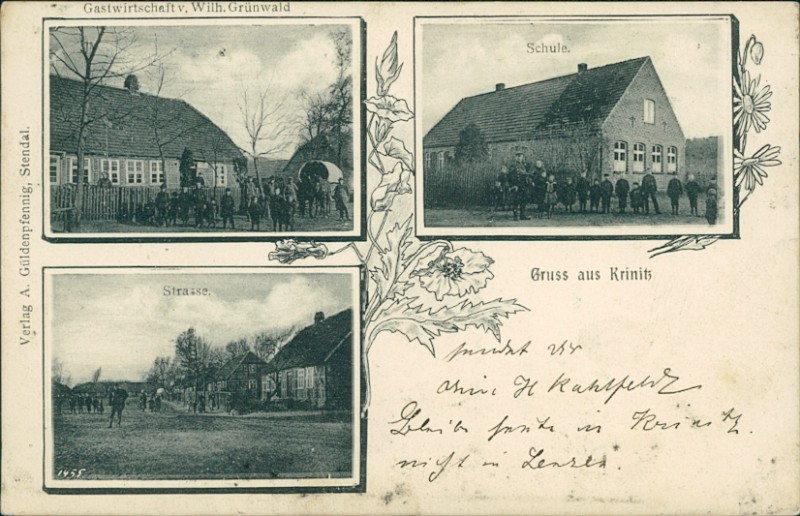 Gastwirtschaft v, Wilh. Grünwald
Schule.
Verlag A. Güldenpfennig, Stendal.
Strasse.
1455
Gruss aus Krinitz
sendet Dir
H Kahlfeldt
Bleibe heute in Krinitz.
nicht in Lenzen.